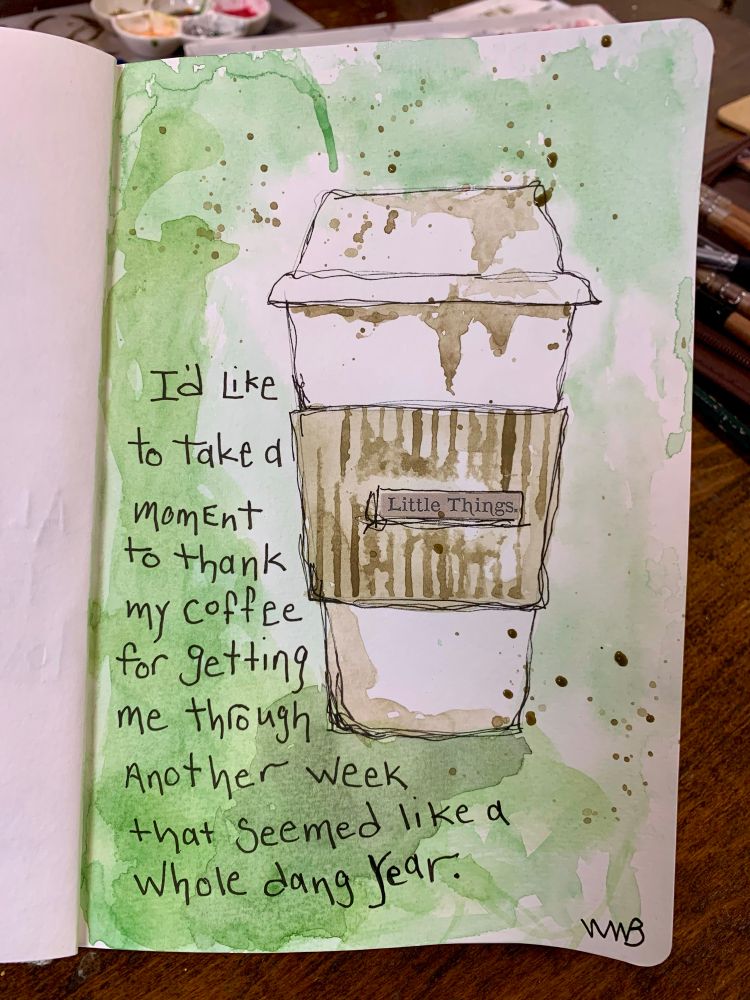 I'd Like
to take a
moment
to thank
my coffee
for getting
me through
Another week
that seemed like a
whole dang year.
Little Things.
WWB